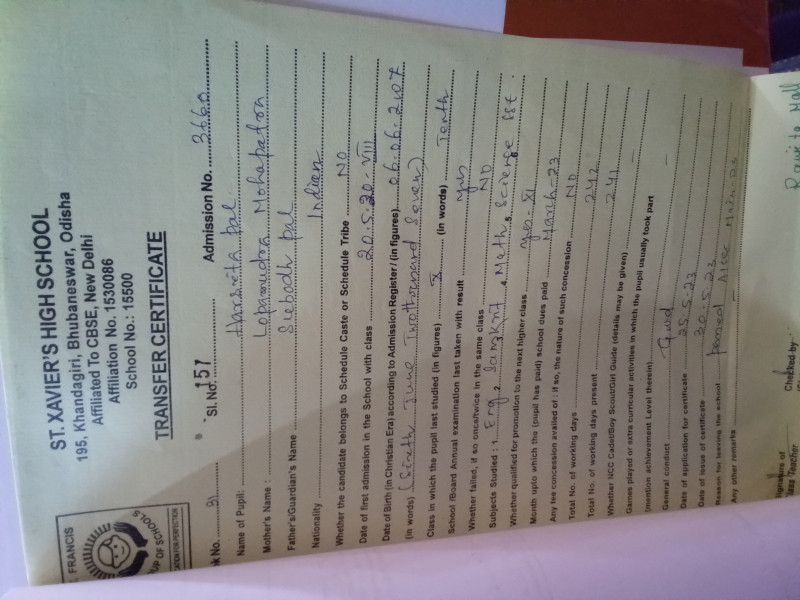 ST. FRANCIS
UP OF SCHOOLS
ST. XAVIER'S HIGH SCHOOL
195, Khandagiri, Bhubaneswar, Odisha
Affiliated To CBSE, New Delhi
Affiliation No. 1530086
School No.: 15500
TRANSFER CERTIFICATE
ok No. 31 Sl.No. 157 Admission No. 3660
Name of Pupil: Pal
Mother's Name: Lopamudra Mohapatra
Father's/Guardian's Name Subodh Pal
Nationality Indian
Whether the candidate belongs to Schedule Caste or Schedule Tribe NO
Date of first admission in the School with class 20.5.20-VIII
Date of Birth (in Christian Era) according to Admission Register/(in figures) 06.06.2007
(in words) (Sixth June Twothousand Seven)
Class in which the pupil last studied (in figures) X (in words) Tenth
School /Board Annual examination last taken with result yes
Whether failed, if so once/twice in the same class NO
Subjects Studied: 1. Eng, Sanskrit, Math, Science, SSt.
Whether qualified for promotion to the next higher class yes-XI
Month upto which thu (pupil has paid) school dues paid March-23
Any fee concession availed of: if so, the nature of such concession NO
Total No. of working days 242
Total No. of working days present 241
Whether NCC Cadet/Boy Scout/Girl Guide (details may be given) —
Games played or extra curricular activities in which the pupil usually took part
(mention achievement Level therein) —
General conduct Good
Date of application for certificate 25.5.23
Date of issue of certificate 30.5.23
Reason for leaving the school passed AISSE March-23
Any other remarks —
ignature of
lass Teacher
Checked by